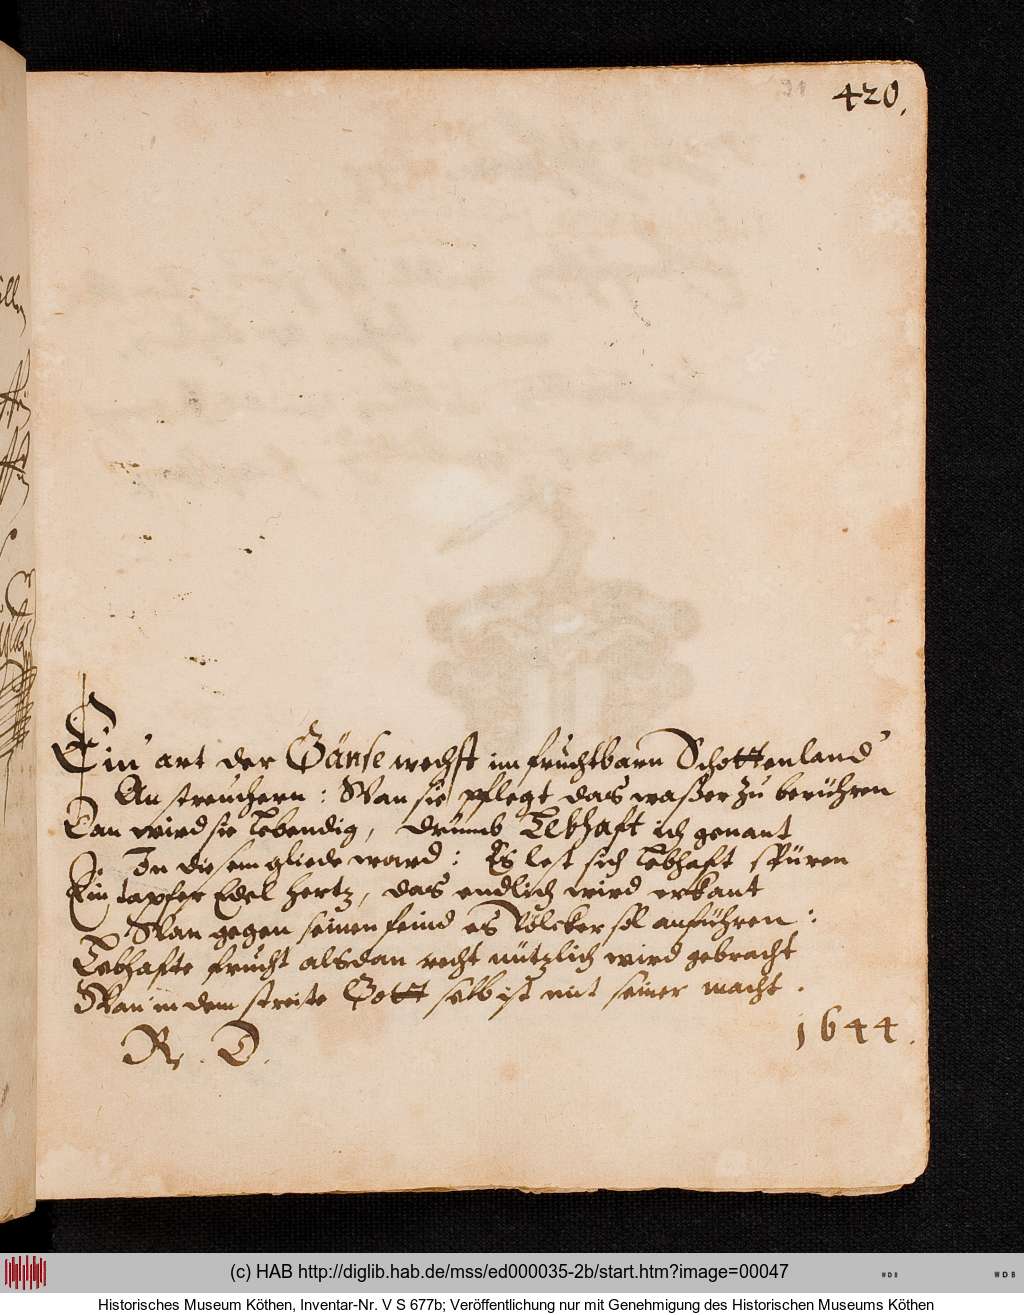 420.
Ein art der Gänse wechst im fruchtbarn Schottenland
An streuchern : Wan sie pflegt das waßer zu berühren
Dan wird sie lebendig, drumb Lebhaft ich genant
In diesem gliede ward : Es lest sich lebhaft spüren
Ein tapfer Edel hertz, das endlich wird erkant
Wan gegen seinen feind es Völcker sol anführen :
Lebhafte frucht alsdan recht nützlich wird gebracht
Wan in dem streite Gott selb ist mit seiner macht .
R. D. 1644.
(c) HAB http://diglib.hab.de/mss/ed000035-2b/start.htm?image=00047
WDB
WDB
Historisches Museum Köthen, Inventar-Nr. V S 677b; Veröffentlichung nur mit Genehmigung des Historischen Museums Köthen